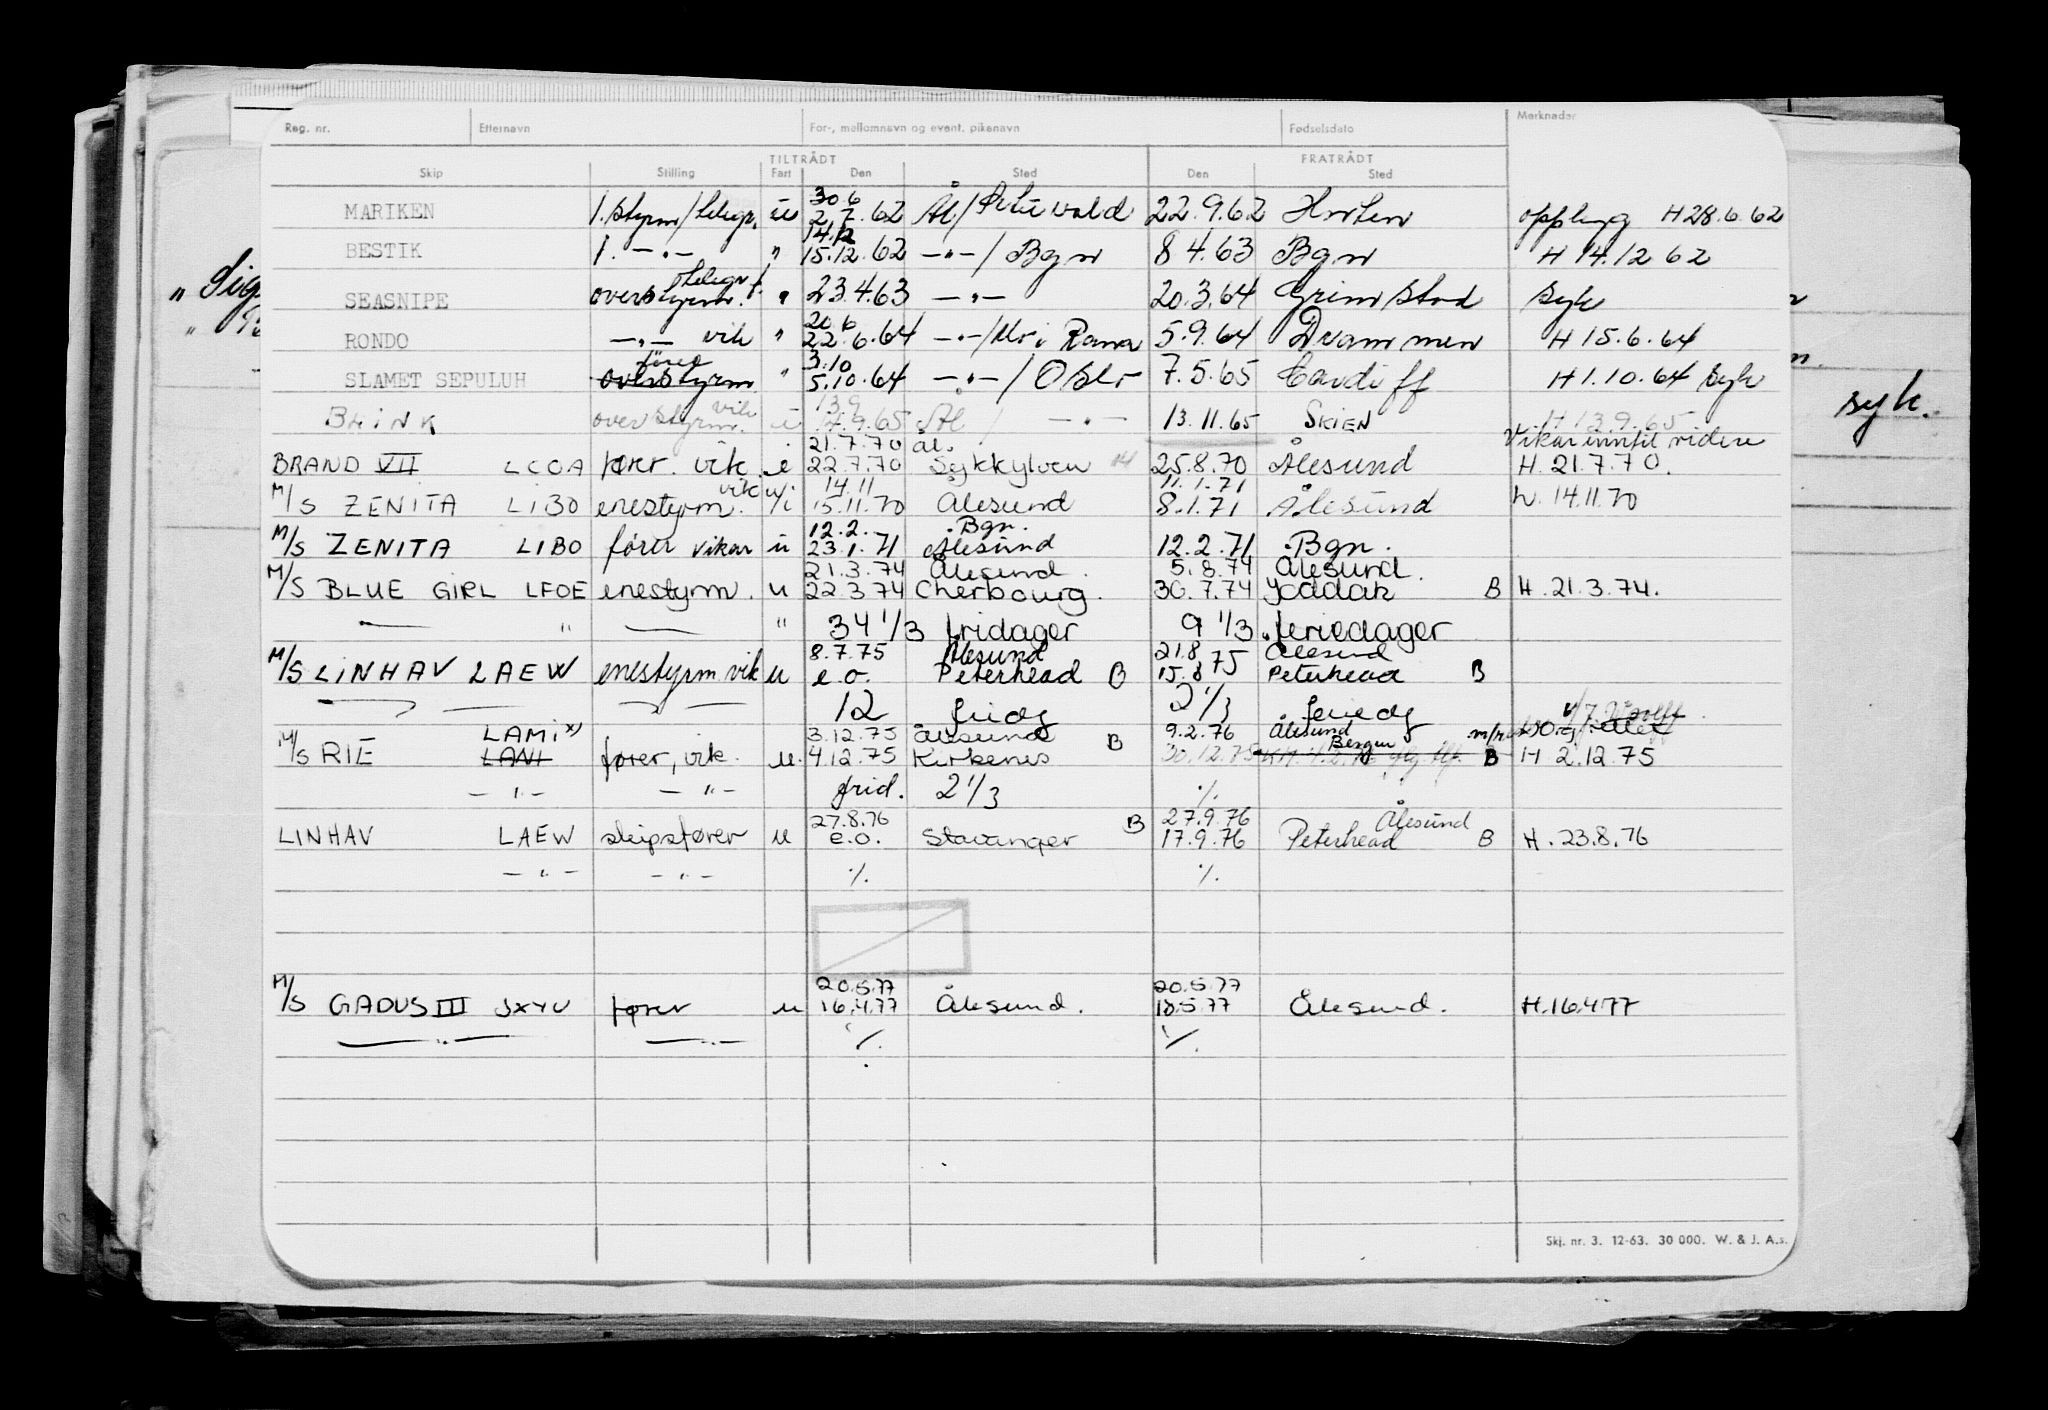 Reg. nr. Etternavn For-, mellomnavn og event. pikenavn Fødselsdato Merknader
TILTRÅDT FRATRÅDT
Skip Stilling Fart Den Sted Den Sted
30.6
MARIKEN 1. styrm/telegr. u 2.7.62 Ål/ 22.9.62 Horten opplegg H 28.6.62
14.12
BESTIK 1. -"- " 15.12.62 -"-/ Bgn 8 4.63 Bgn H 14.12 62
telegr f.
SEASNIPE overstyrm. " 23.4.63 -"- 20.3.64 Grimstad syk
20.6
RONDO -"- vik " 22.6.64 -"-/Mo i Rana 5.9.64 Drammen H 15.6.64
fører 3.10
SLAMET SEPULUH overstyrm " 5.10.64 -"-/ Oslo 7.5.65 Cardiff H 1.10.64 syk
syk.
vik 13.9
BRINK overstyrm. u .9.65 Ål / -"- 13.11.65 SKIEN H 13.9.65
21.7.70 Ål. Vikar inntil videre
BRAND VII LCOA fører. vik. i 22.7.70 Sykkylven 25.8.70 Ålesund H. 21.7.70.
vik 14.11 11.1.71
M/S ZENITA LIBO enestyrm. u/i 15.11.70 Ålesund 8.1.71 Ålesund h. 14.11.70
12.2. Bgn.
M/S ZENITA LIBO fører vikar u 23.1.71 Ålesund 12.2.71 Bgn.
21.3.74 Ålesund. 5.8.74 Ålesund.
M/S BLUE GIRL LFOE enestyrm. u 22.3.74 Cherbourg. 30.7.74 B H. 21.3.74.
— " — " 34 1/3 fridager 9 1/3 feriedager
8.7.75 Ålesund 21.8 Ålesund
M/S LINHAV LAEW enestyrm vik u e.o. Peterhead B 15.8 75 Peterhead B
12 fridg 2 1/3 feriedg
LAMI x) 3.12.75 Ålesund 9.2.76 Ålesund
M/S RIE LANI fører, vik. u. 4.12.75 Kirkenes B 30.12.75 Bergen B H 2.12.75
-"- -"- frid. 2 1/3 %
27.8.76 27.9.76 Ålesund
LINHAV LAEW skipsfører u e.o. Stavanger B 17.9.76 Peterhead B H. 23.8.76
-"- -"- % %
20.5.77 20.5.77
M/S GADUS III JXYU fører u 16.4.77 Ålesund. 18.5.77 Ålesund. H.16.4.77
—"— —"— % %
Skj. nr. 3. 12-63. 30 000. W. & J. A.s.